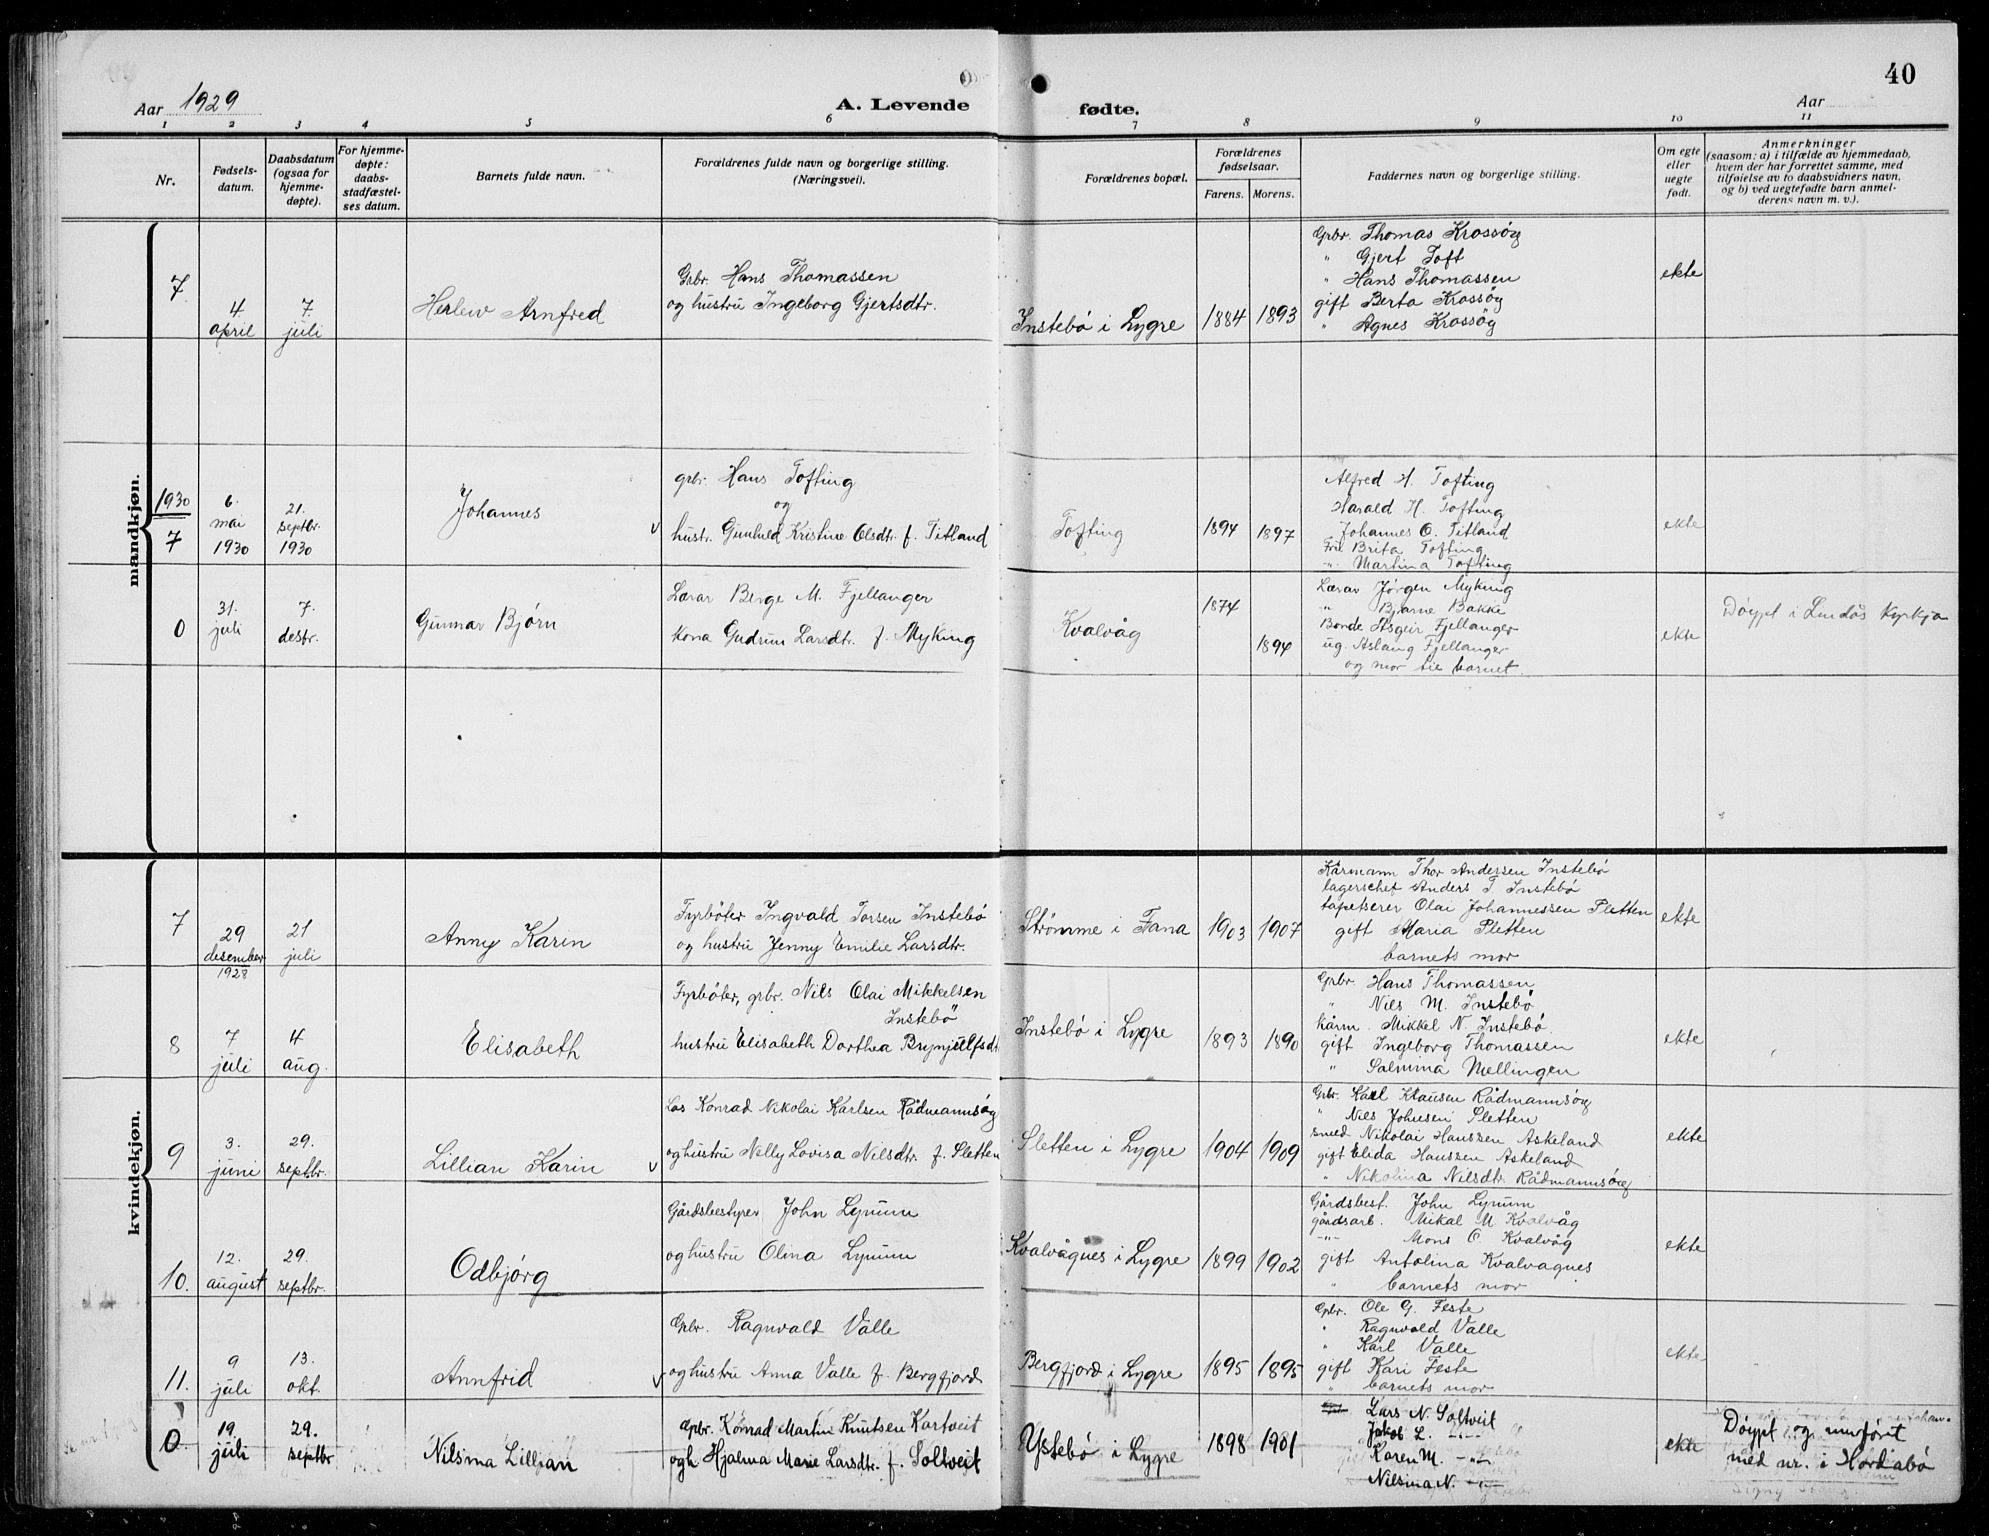 40
Aar 1929
A. Levende
fødte.
Aar
1 2 3 4 5 6 7 8 9 10 11
Nr.
Fødsels-
datum.
Daabsdatum
(ogsaa for
hjemme-
døpte).
For hjemme-
døpte:
daabs-
stadfæstel-
ses datum.
Barnets fulde navn.
Forældrenes fulde navn og borgerlige stilling.
(Næringsvei).
Forældrenes bopæl.
Forældrenes
fødselsaar.
Farens. Morens.
Faddernes navn og borgerlige stilling.
Om egte
eller
uegte
født.
Anmerkninger
(saasom: a) i tilfælde av hjemmedaab,
hvem der har forrettet samme, med
tilføielse av to daabsvidners navn,
og b) ved uegtefødte barn anmel-
derens navn m. v.).
mandkjøn.
7
4.
april
7.
juli
Herlew Arnfred
Grbr. Hans Thomassen
og hustru Ingeborg Gjertsdtr.
Instebö i Lygre
1884
1893
Grbr. Thomas Krossög
" Gjert Toft
" Hans Thomassen
gift Berta Krossög
" Agnes Krossög
ekte
1930
7
6.
mai
1930
21.
septbr.
1930
Johannes
v
grbr. Hans Tofting
og
hustr. Gunhild Kristine Olsdtr. f. Titland
Tofting
1894
1897
Alfred H. Tofting
Harald H. Tofting
Johannes O. Titland
Frk Brita Tofting
-"- Martina Tofting
ekte
0
31.
juli
7.
desbr.
Gunnar Bjørn
Lærar Berge M. Fjellanger
Kona Gudrun Larsdtr. f. Myking
Kvalvåg
1874
1894
Lærar Jørgen Myking
" Bjarne Bakke
Bonde Asgeir Fjellanger
ug. Aslaug Fjellanger
og mor til barnet.
ekte
Döypt i Lindås Kyrkja
kvindekjøn.
7
29
desember
1928
21
juli
Anny Karin
Fyrböter Ingvald Torsen Instebö
og hustru Jenny Emilie Larsdtr.
Strömme i Fana
1903
1907
Kårmann Thor Andersen Instebö
lagerschef Anders T. Instebö
tapetserer Olai Johannessen Pletten
gift Maria Pletten
barnets mor
ekte
8
7
juli
4
aug.
Elisabeth
Fyrböter, grbr. Nils Olai Mikkelsen
Instebö
hustru Elisabeth Dorthea Brynjulfsdt
Instebö i Lygre
1893
1890
Grbr. Hans Thomassen
" Nils M. Instebö
kårm. Mikkel N. Instebö.
gift Ingeborg Thomassen
" Salmina Mellingen
ekte
9
3.
juni
29.
septbr.
Lillian Karin
v
Los Konrad Nikolai Karlsen Rådmannsög
og hustru Nelly Lovisa Nilsdtr. f. Sletten
Sletten i Lygre
1904
1909
Grbr. Karl Klausen Rådmannsög
" Nils Johnsen Sletten
smed Nikolai Hanssen Askeland
gift Elida Hanssen Askeland
" Nikolina Nilsdtr. Rådmannsög
ekte
10.
12.
august
29.
septbr.
Odbjørg
Gårdsbestyrer John Lynum
og hustru Olina Lynum
Kvalvågnes i Lygre
1899
1902
Gårdsbest. John Lynum
gårdsarb. Mikal M. Kvalvåg
-"- Mons O. Kvalvåg
gift Antolina Kvalvagnes
" barnets mor
ekte
11.
9
juli
13.
okt.
Annfrid
v
Grbr. Ragnvald Valle
og hustru Anna Valle f. Bergfjord
Bergfjord i Lygre
1895
1895
Grbr. Ole G. Feste
" Ragnvald Valle
" Karl Valle
gift Kari Feste
" barnets mor
ekte
0.
19.
juli
29.
septbr
Nilsma Lilljan
Grbr. Konrad Martin Knutsen Kartveit
ogh Hjalma Marie Larsdtr. f. Soltveit
Ystebö i Lygre
1898
1901
Lars N. Soltveit
Jakob L. -"-
Karen M. -"-
Nilsina N. -"-
ekte
Döypt og innfört
med nr. i Hordabö